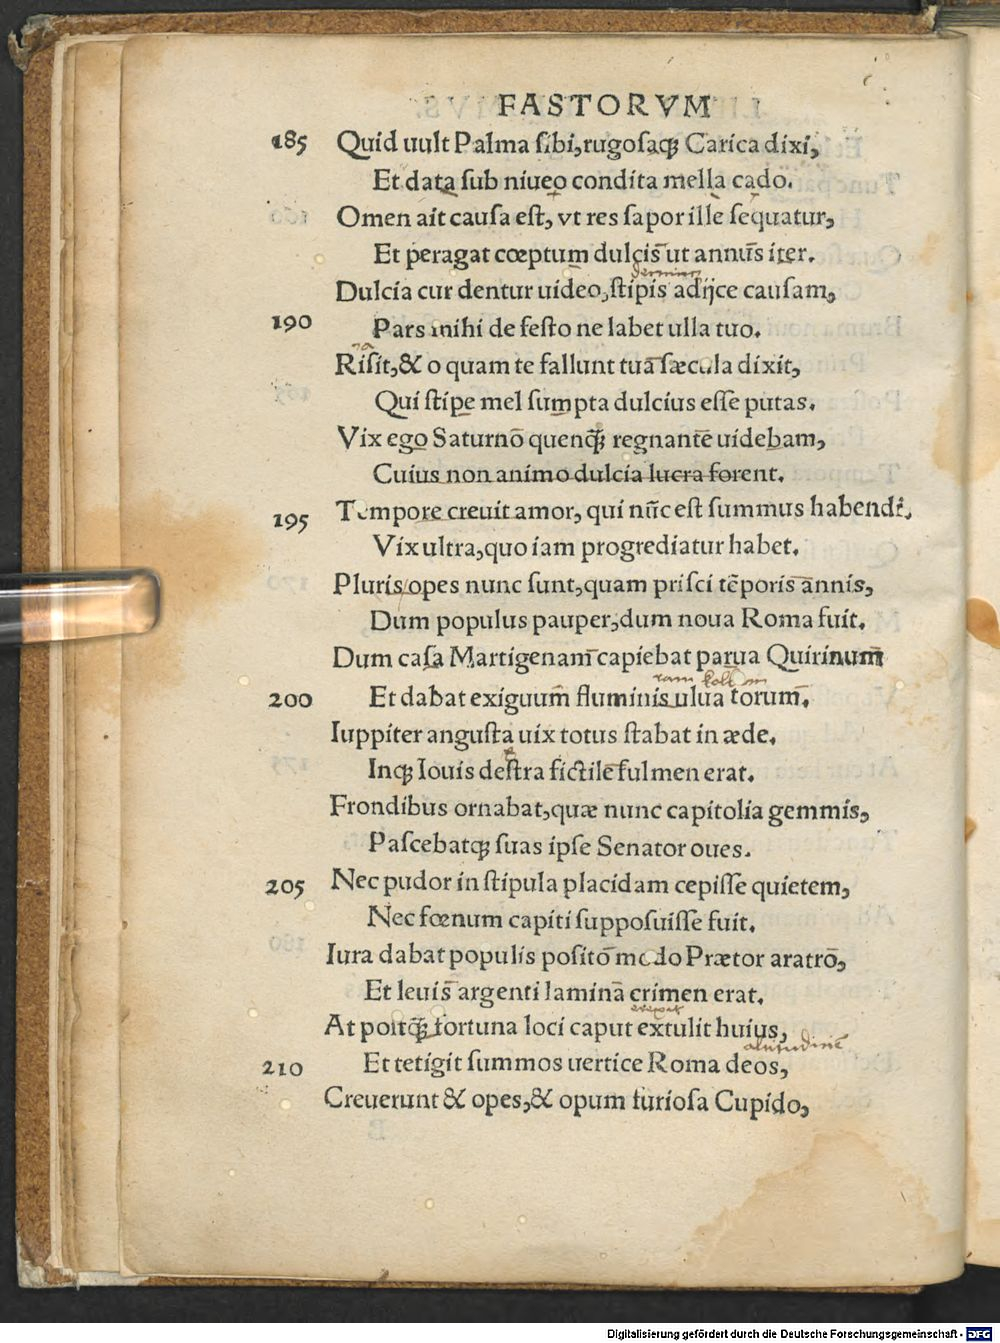 FASTORVM
185 Quid uult Palma ſibi, rugoſaqꝫ Carica dixi,
Et data ſub niueo condita mella cado.
Omen ait cauſa eſt, vt res ſapor ille ſequatur,
Et peragat cœptum dulcis ut annus iter.
Dulcia cur dentur uideo, ſtipis adijce cauſam,
190 Pars mihi de feſto ne labet ulla tuo.
Riſit, & o quam te fallunt tua ſæcula dixit,
Qui ſtipe mel ſumpta dulcius eſſe putas.
Vix ego Saturno quenqꝫ regnante uidebam,
Cuius non animo dulcia lucra forent.
195 Tempore creuit amor, qui nūc eſt ſummus habendi,
Vix ultra, quo iam progrediatur habet.
Pluris opes nunc ſunt, quam priſci tēporis annis,
Dum populus pauper, dum noua Roma fuit.
Dum caſa Martigenam capiebat parua Quirinum
200 Et dabat exiguum fluminis ulua torum.
Iuppiter anguſta uix totus ſtabat in æde.
Inqꝫ Iouis deſtra fictile fulmen erat.
Frondibus ornabat, quæ nunc capitolia gemmis,
Paſcebatqꝫ ſuas ipſe Senator oues.
205 Nec pudor in ſtipula placidam cepiſſe quietem,
Nec fœnum capiti ſuppoſuiſſe fuit.
Iura dabat populis poſito modo Prætor aratro,
Et leuis argenti lamina crimen erat.
At poſtqꝫ fortuna loci caput extulit huius,
210 Et tetigit ſummos uertice Roma deos,
Creuerunt & opes, & opum furioſa Cupido,
Digitalisierung gefördert durch die Deutsche Forschungsgemeinschaft - DFG